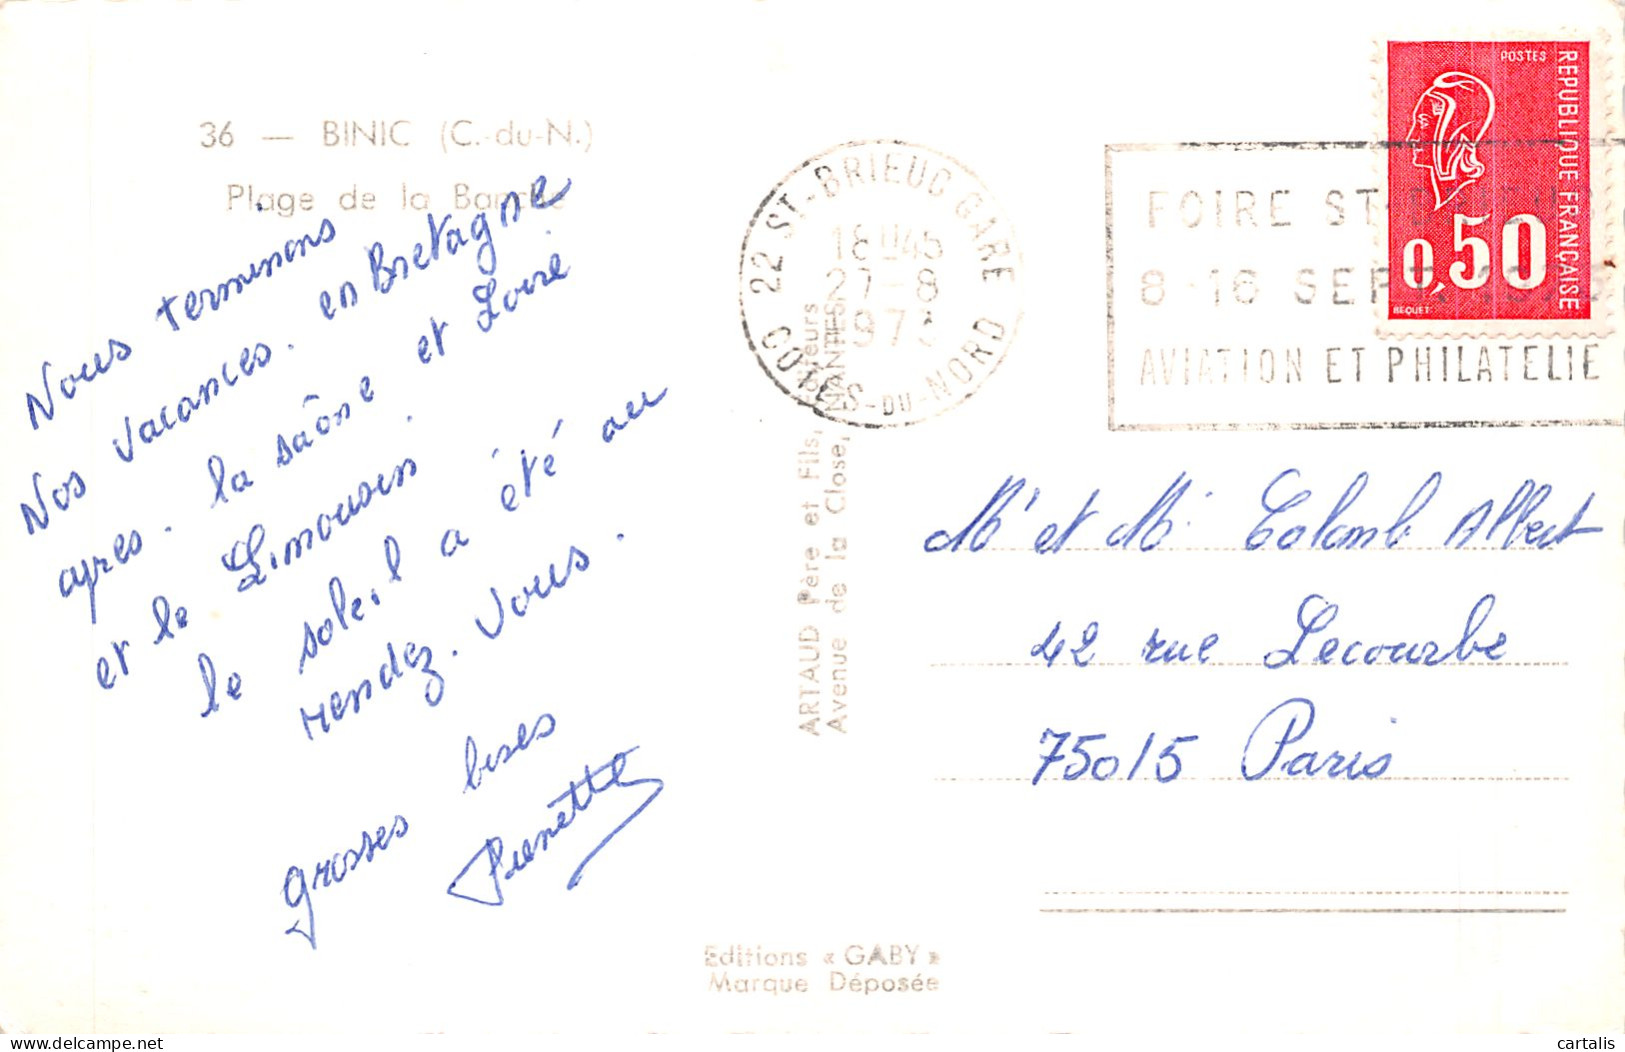 36 — BINIC (C.-du-N.)
Plage de la Banche
Nous terminons
Nos vacances. en Bretagne
apres. la saône et Loire
et le Limousin.
le soleil a été au
rendez. Vous.
grosses bises
Pierrette
ARTAUD Père et Fils,
Avenue de la Close, NANTES
Editions « GABY »
Marque Déposée
22 ST-BRIEUC GARE
18H45
27-8
COTES-DU-NORD
FOIRE ST-BRIEUC
8-16 SEPT.
AVIATION ET PHILATELIE
POSTES
REPUBLIQUE FRANÇAISE
0,50
BEQUET
Mr et Me Colomb Albert
42 rue Lecourbe
75015 Paris
cartalis